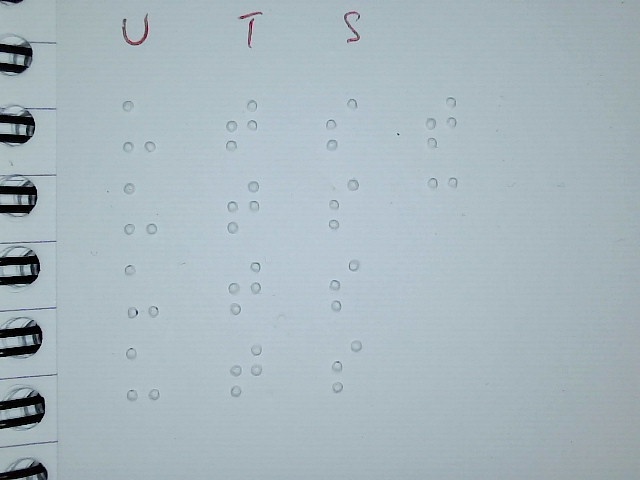 U T S
⠥ ⠞ ⠎ ⠞
⠥ ⠞ ⠎ ⠉
⠥ ⠞ ⠎
⠥ ⠞ ⠎